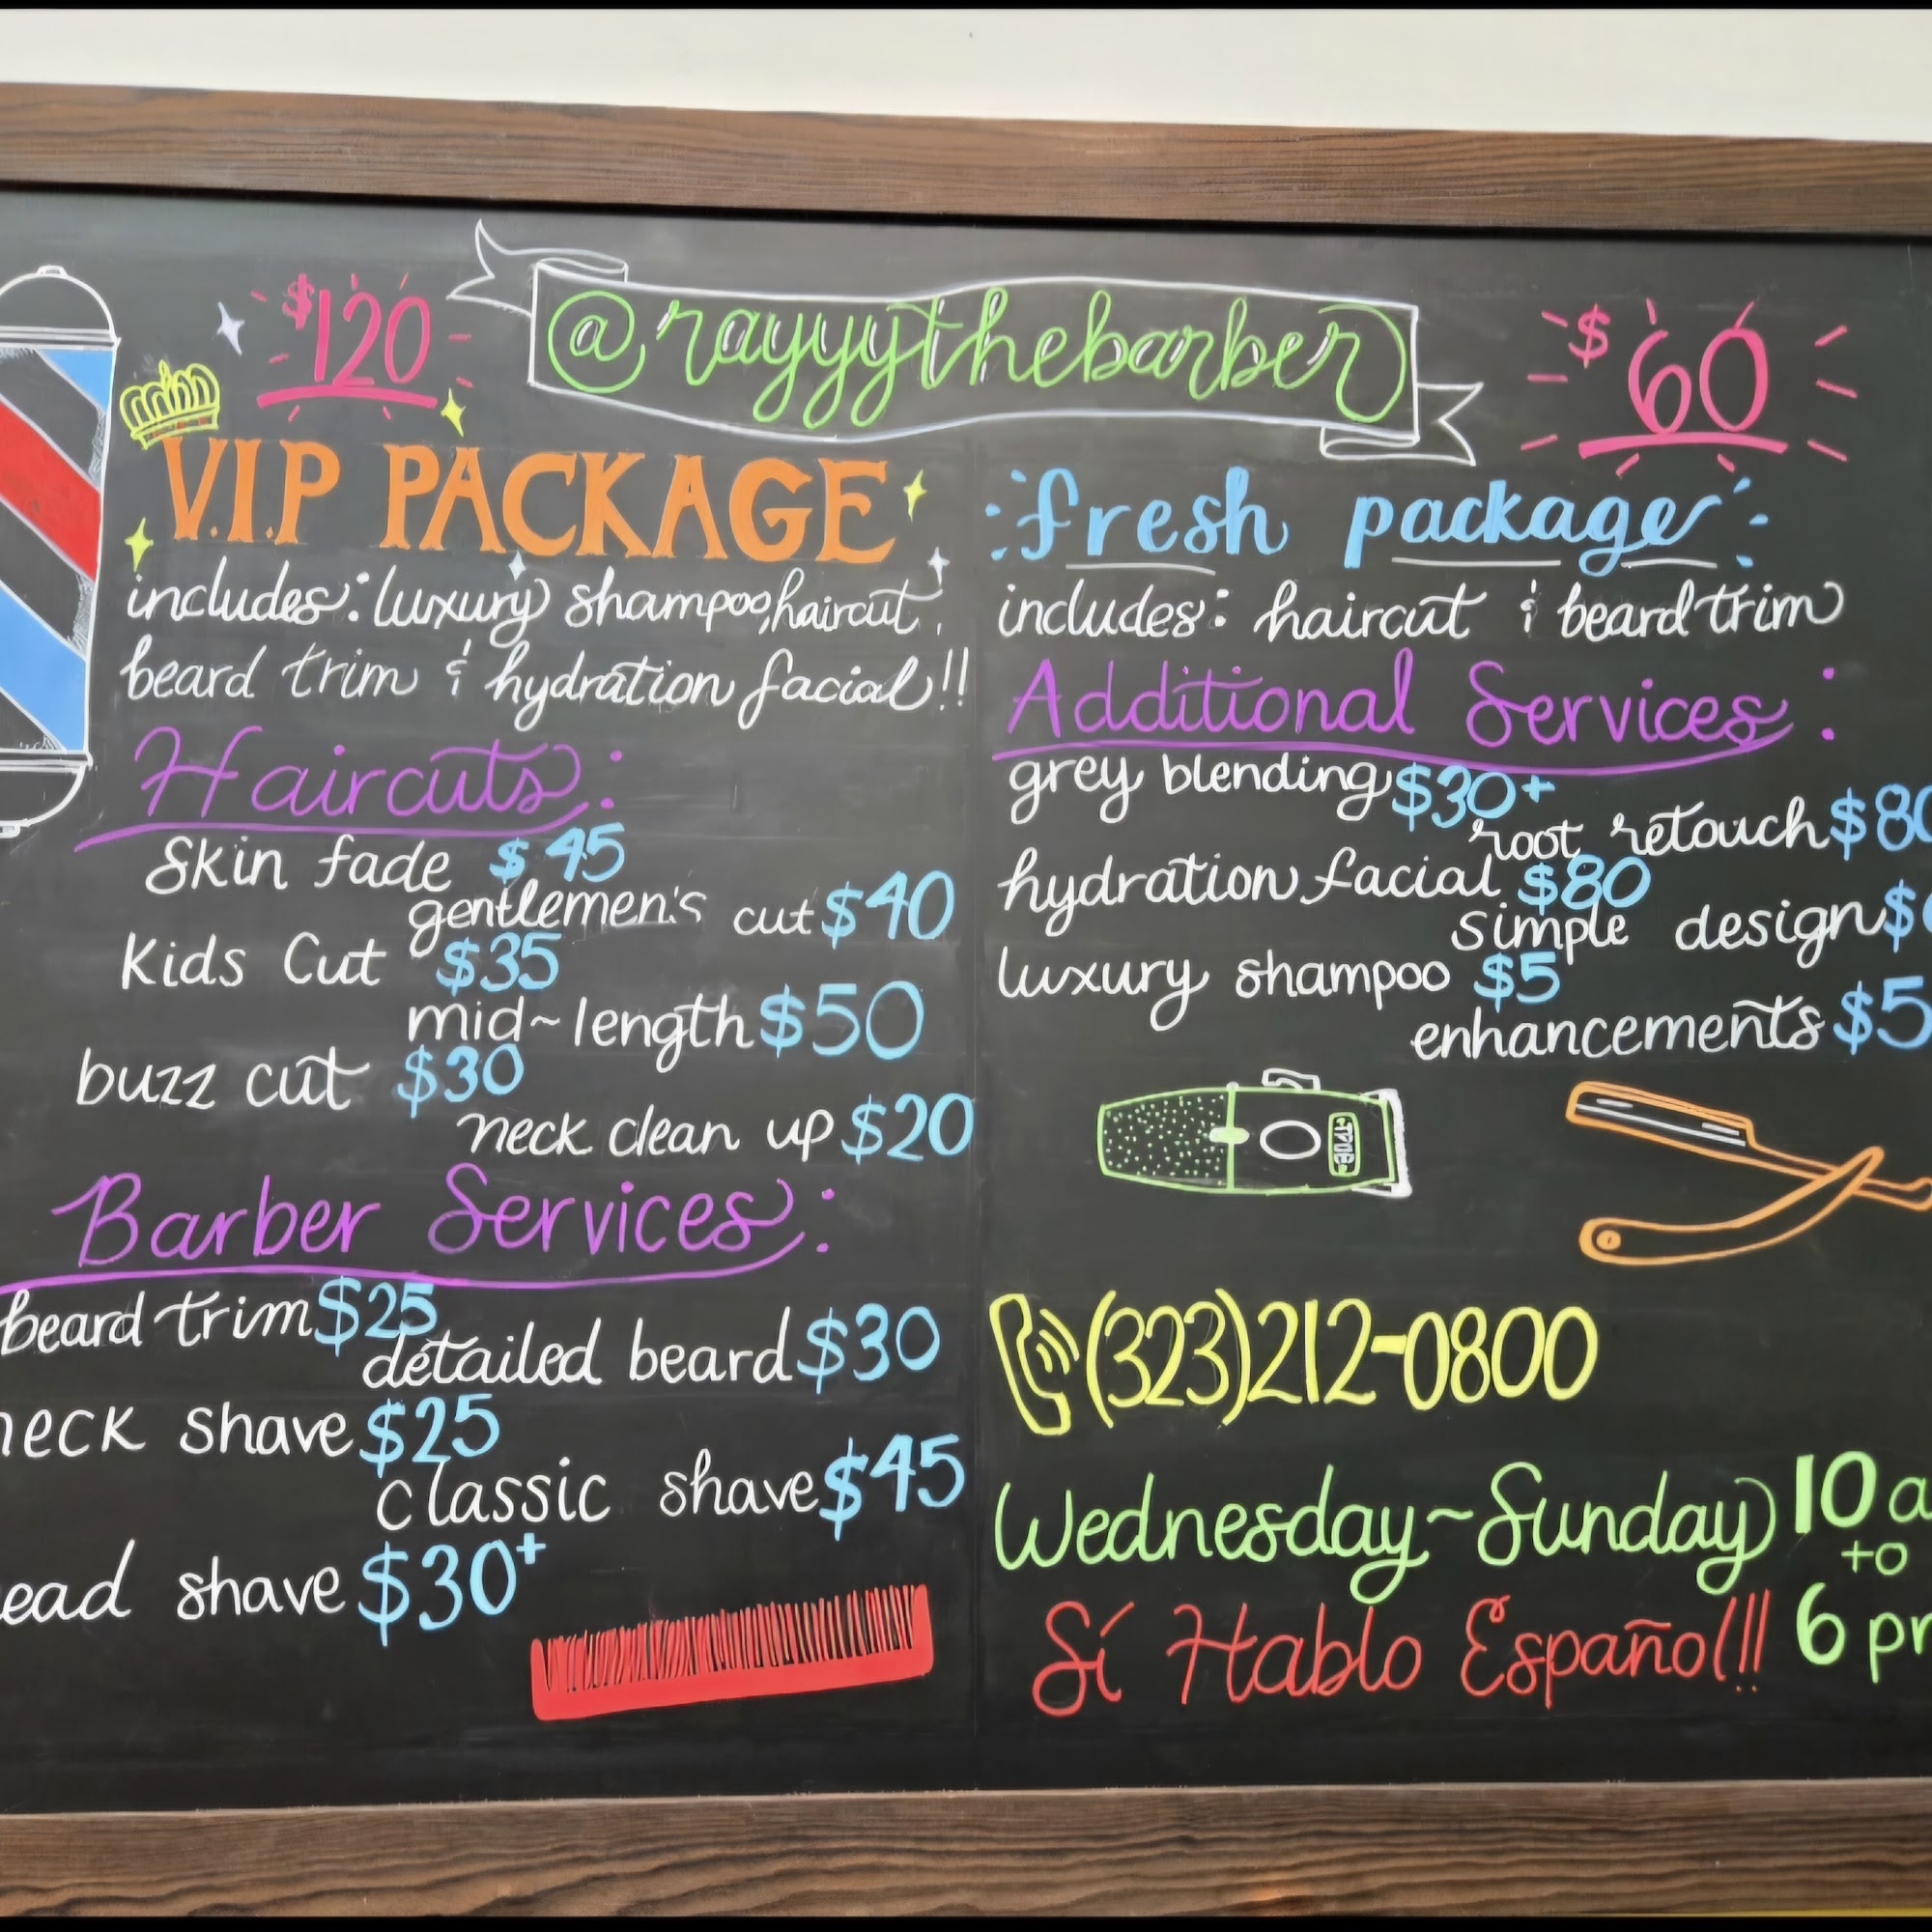 @rayyythebarber
$120
V.I.P PACKAGE
includes: luxury shampoo, haircut,
beard trim & hydration facial!!
Haircuts:
Skin fade $45
gentlemen's cut $40
Kids Cut $35
mid~length $50
buzz cut $30
neck clean up $20
Barber Services:
beard trim $25
detailed beard $30
neck shave $25
classic shave $45
ead shave $30+
$60
fresh package
includes: haircut & beard trim
Additional Services:
grey blending $30+
root retouch $80
hydration facial $80
simple design $
luxury shampoo $5
enhancements $5
(323)212-0800
Wednesday~Sunday 10 a
to
6 p
Sí Hablo Español!!!